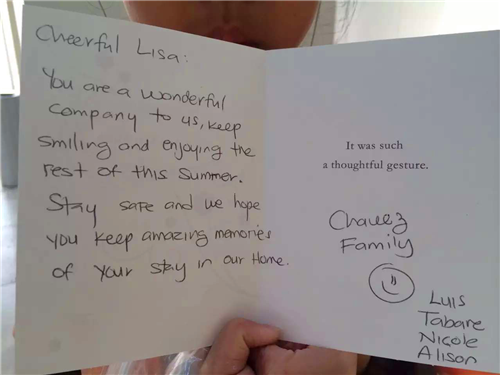 Cheerful Lisa:
You are a wonderful
company to us, keep
smiling and enjoying the
rest of this summer.
Stay safe and we hope
you keep amazing memories
of your stay in our Home.
It was such
a thoughtful gesture.
Chavez
Family
Luis
Tabare
Nicole
Alison